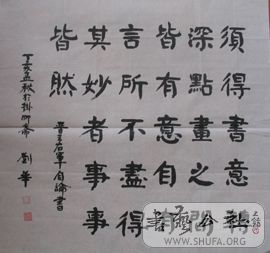 須得書意轉
深點畫之間
皆有意自有
言所不盡得
其妙者事事
皆然
晉王右軍自論書
丁亥孟秋於掛柳齋 劉華
WWW.SHUFA.ORG